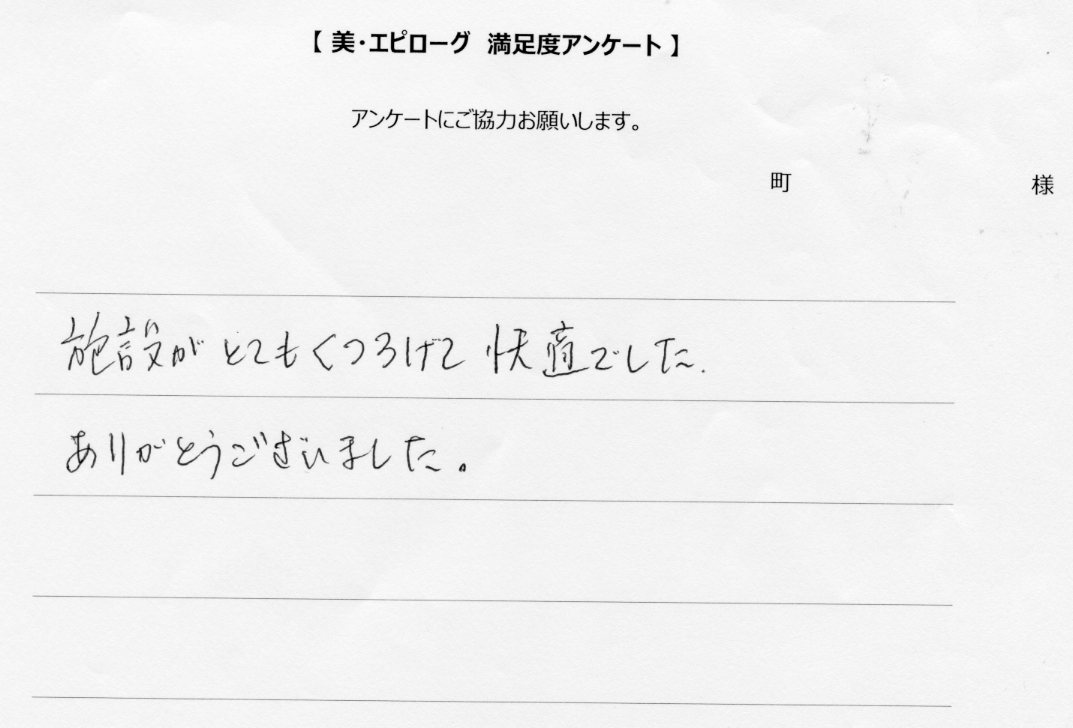 【 美・エピローグ 満足度アンケート 】
アンケートにご協力お願いします。
町 様
施設がとてもくつろげて 快適でした.
ありがとうございました。